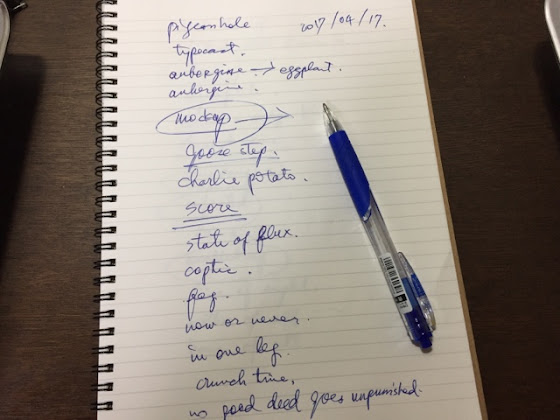 pigeonhole 2017/04/17.
typecast.
aubergine → eggplant.
aubergine.
mockup →
goose step.
charlie potato.
score
state of flux.
coptic.
gag.
now or never.
in one leg.
crunch time.
no good deed goes unpunished.